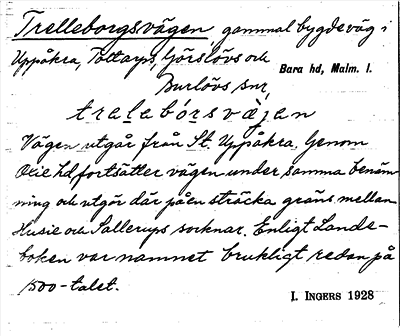 Trelleborgsvägen gammal bygdeväg i
Uppåkra, Tottarps, Görslövs och
Bara hd, Malm. l.
Burlövs snr,
trelebórsvàjen
Vägen utgår från St. Uppåkra. Genom
Oxie hd fortsätter vägen under samma benäm-
ning och utgör där på en sträcka gräns mellan
Husie och Sallerups socknar. Enligt Lande-
boken var namnet brukligt redan på
1500-talet.
I. INGERS 1928